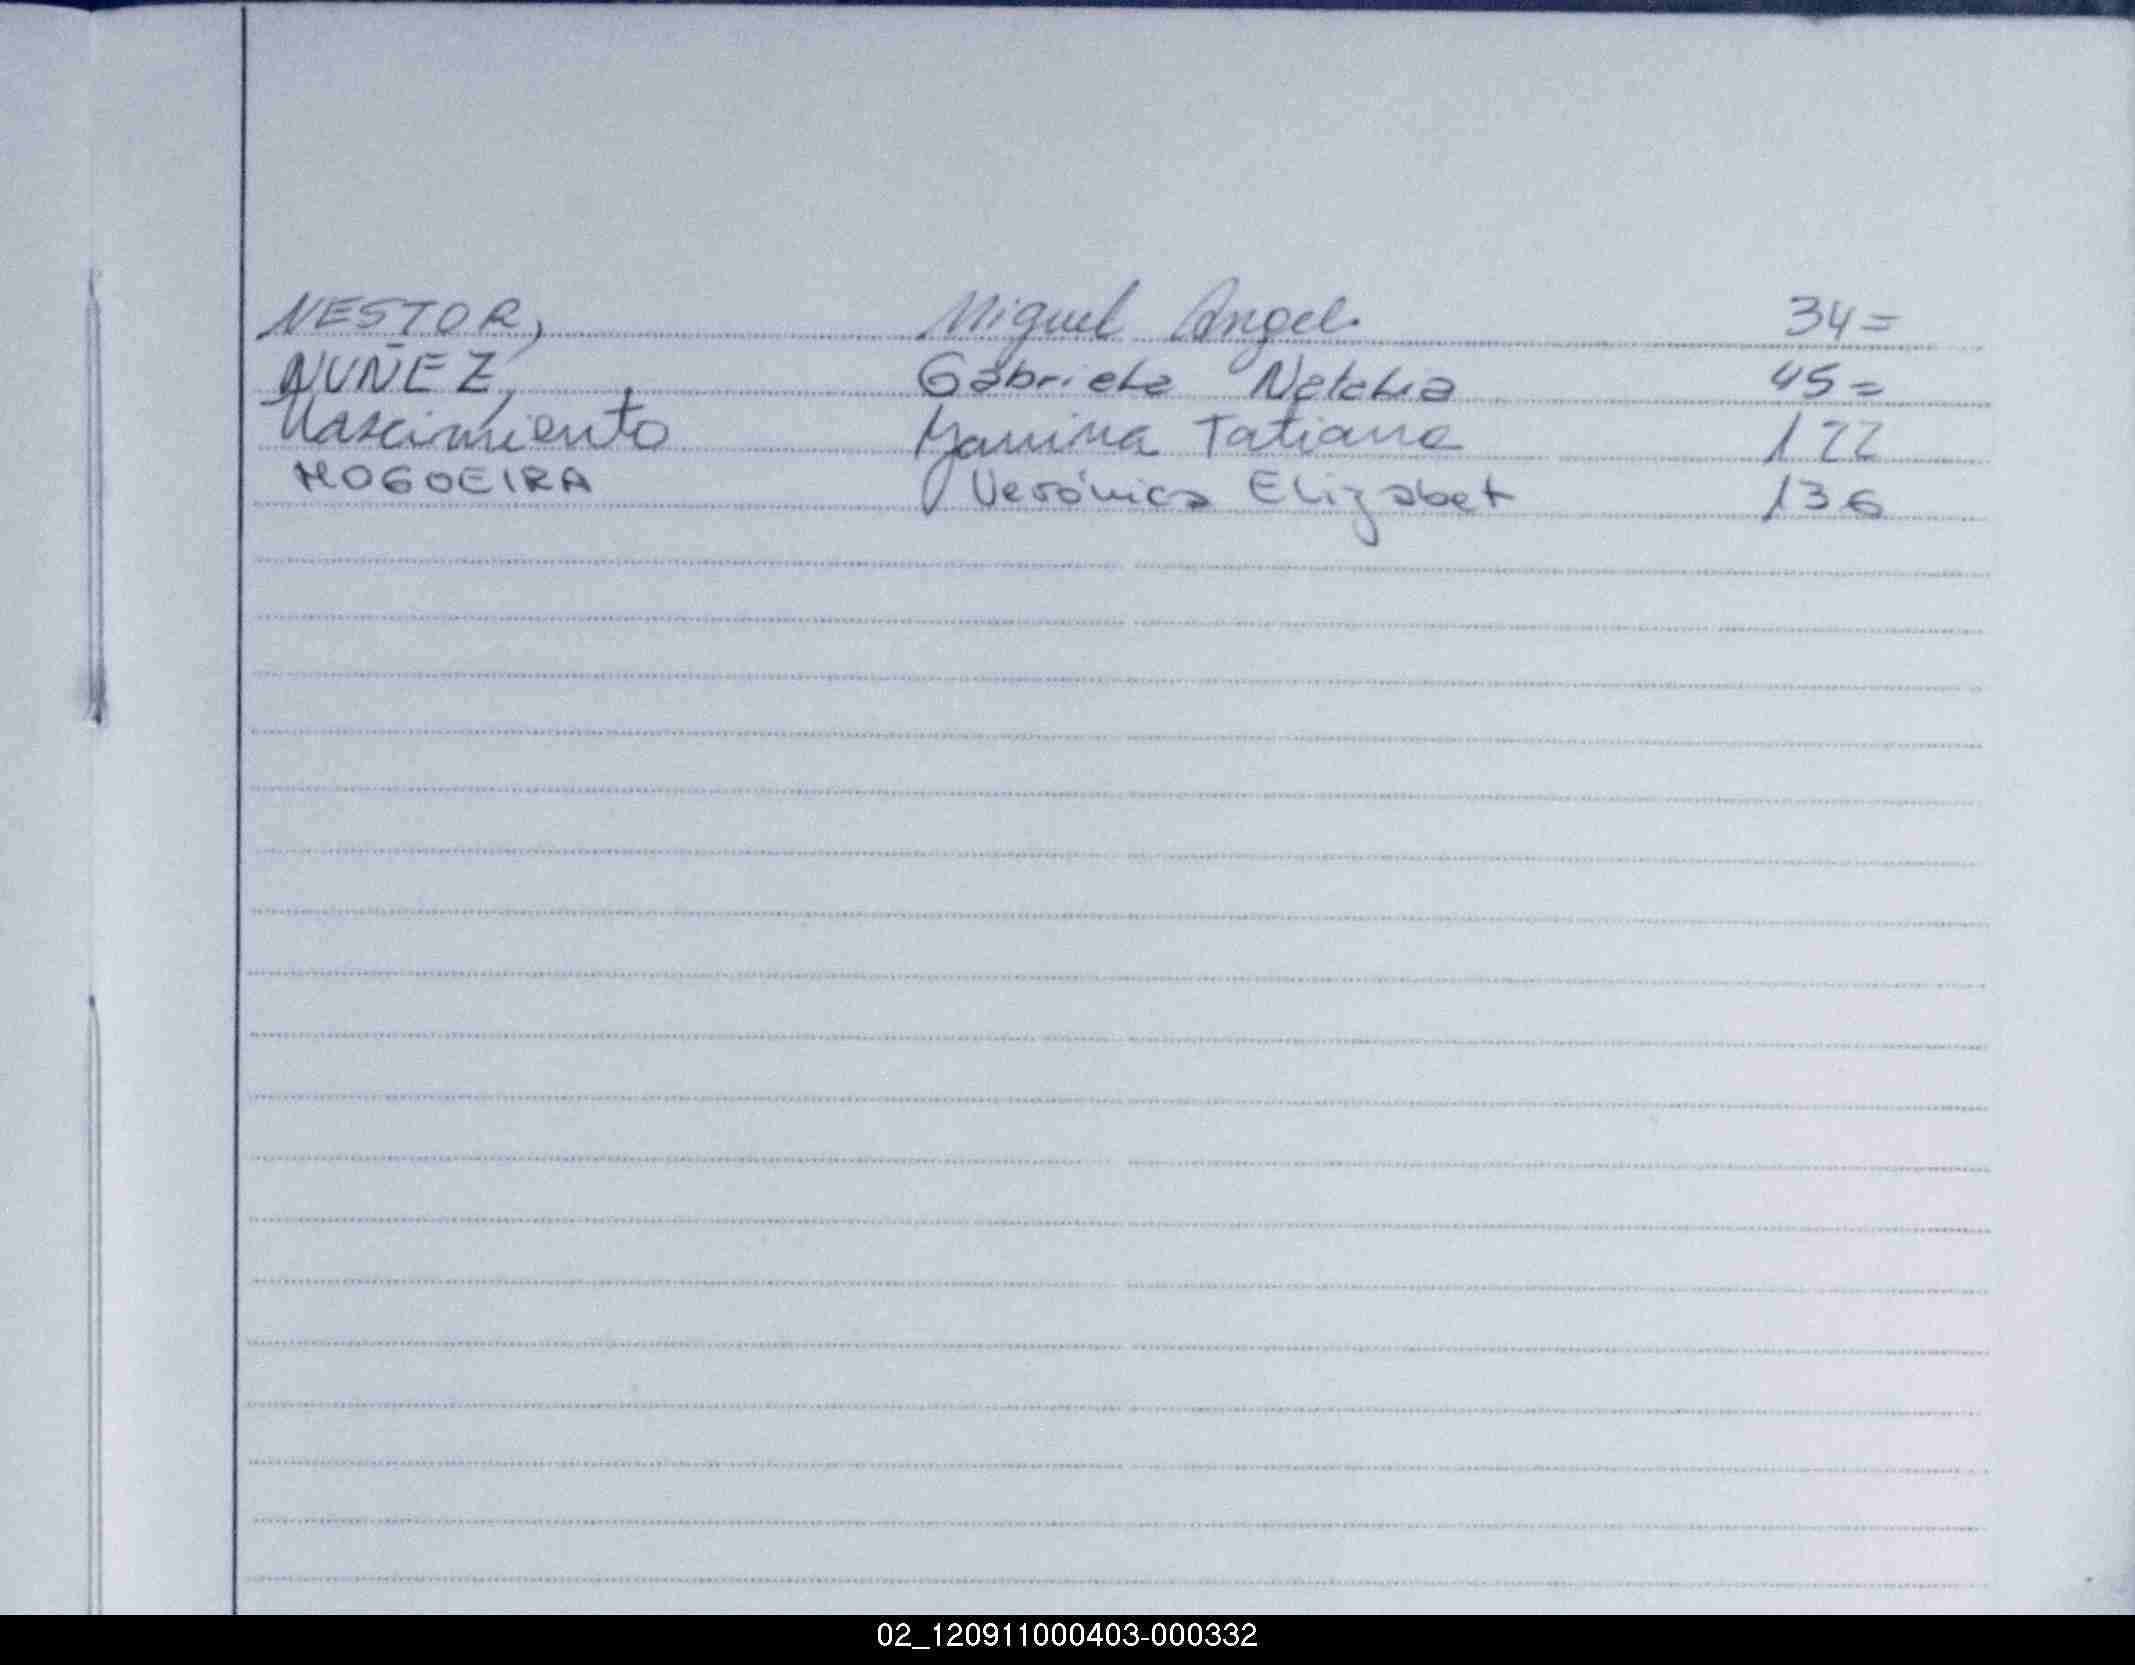 NESTOR, Miguel Angel. 34=
NUÑEZ, Gabriela Natalia 45=
Nascimiento Yanina Tatiana 122
NOGOEIRA Verónica Elizabet 136
02_120911000403-000332